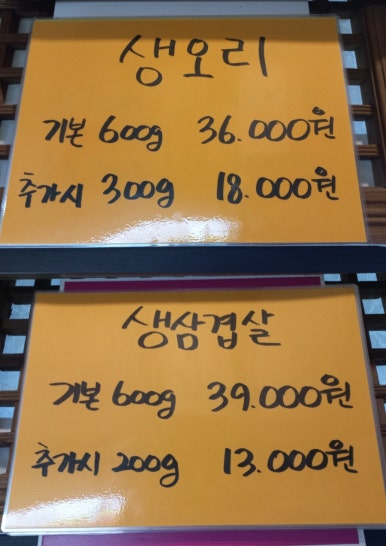 생오리
기본 600g 36.000원
추가시 300g 18.000원
생삼겹살
기본 600g 39.000원
추가시 200g 13.000원